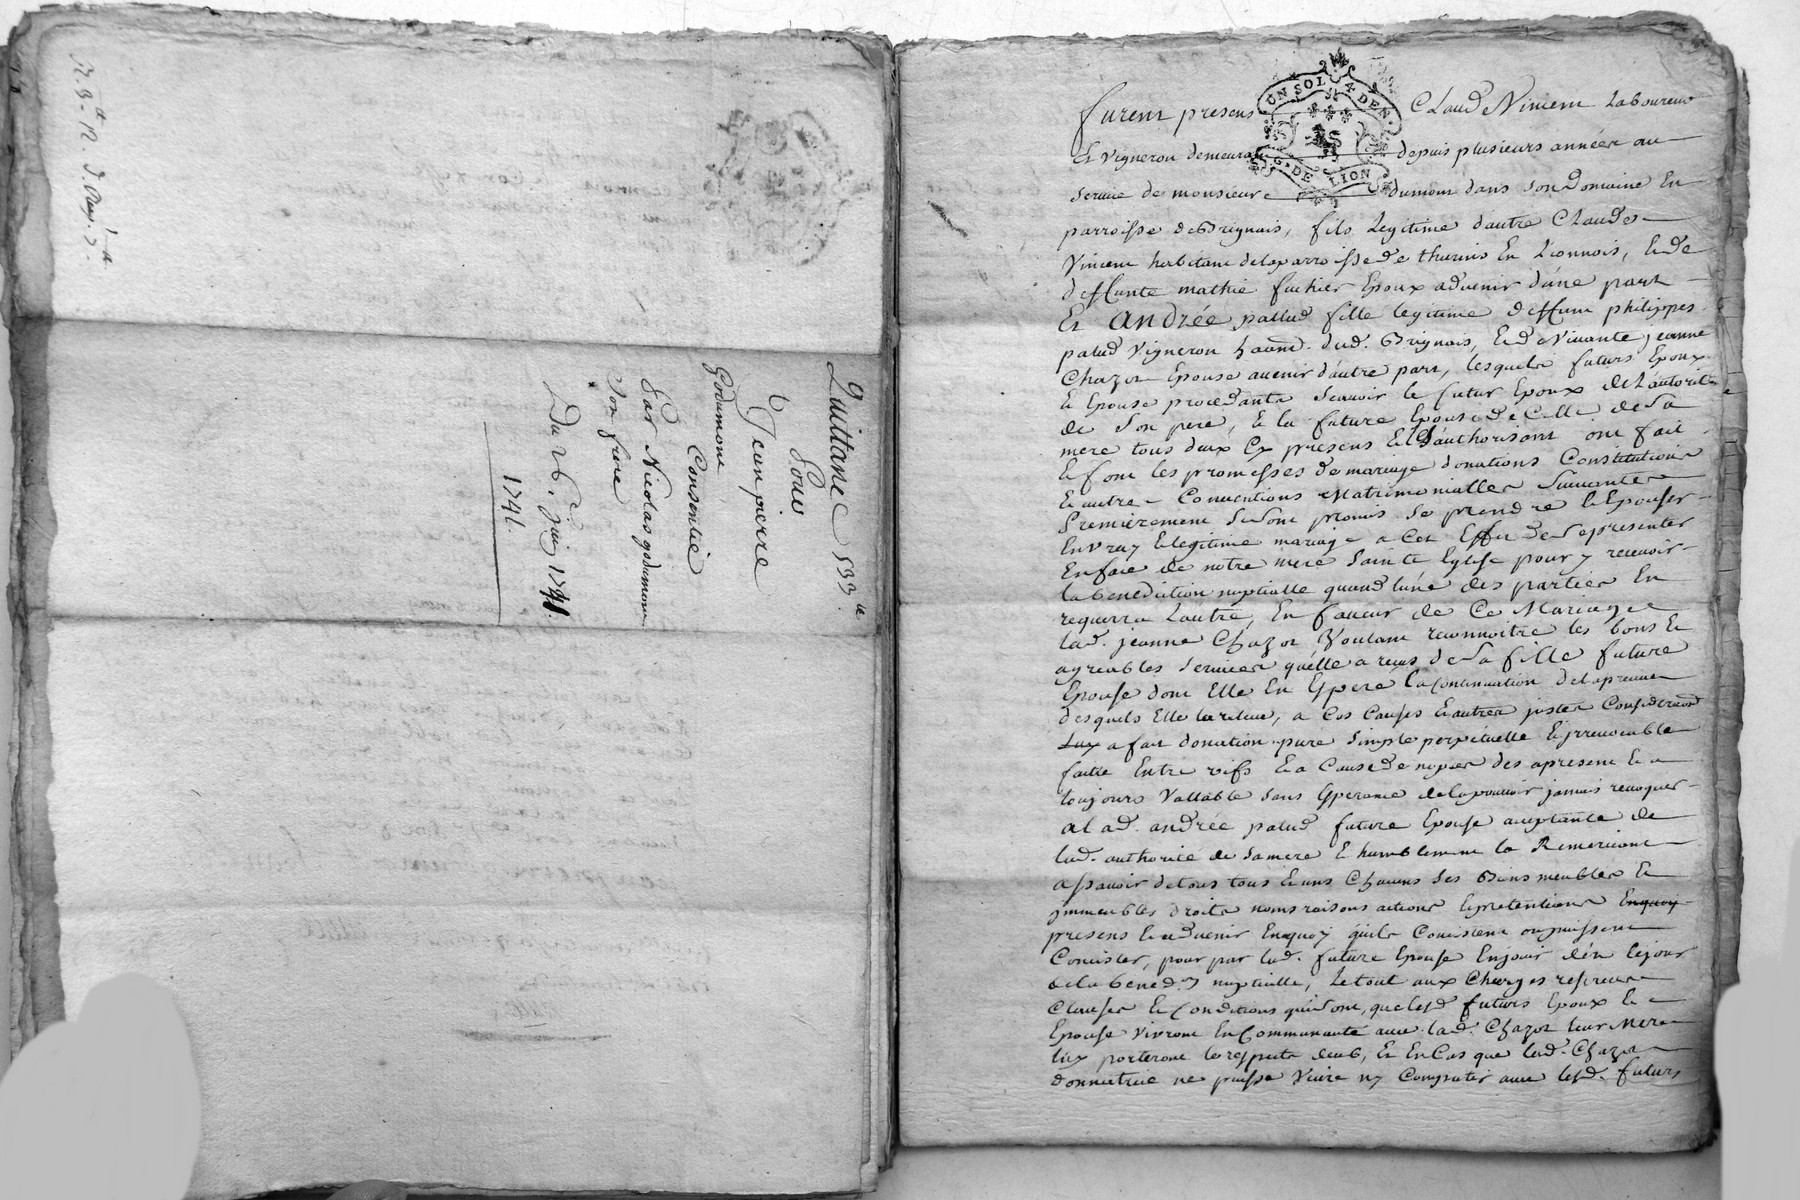 Quittance 533.te
Pour
Jean pierre
Godumone
Consentie
Par Nicolas godumone
son frere
Du 26.e Juin 1741.
1741.
UN SOL 4 DEN.
G.DE LION
furent presens Claud Vincent Laboureur
Et vigneron demeurant depuis plusieurs années au
service de monsieur dumont dans son Domaine En
parroisse de Brignais, fils Legitime d'autre Claude
Vincent habitant delaparroisse de thurins En Lionnois, Et de
deffunte mathie fuchier Epoux advenir d'une part
Et Andrée pallud fille legitime deffunt philippes
palud vigneron habitt. dud. Brignais, Et de Vivante jeanne
Chazot Epouse avenir d'autre part, lesquels futurs Epoux
Et Epouse procedants scavoir le futur Epoux de L'autorité
de son pere, Et la future Epouse de Celle de sa
mere tous deux Cy presens Et L'authorisant ont fait
Et font les promesses de mariage donations Constitutions
Et autres Conventions Matrimonialles suivantes
Premierement se sont promis se prendre Et Epouser
En vray Et legitime mariage a Cet Effet de se presenter
En face de notre mere sainte Eglise pour y recevoir
la benediction nuptialle quand l'une des parties En
requerra Lautre, En faveur de Ce Mariage
lad. jeanne Chazot Voulant reconnoitre les bons Et
agreables services quélle a reçus de sa fille future
Epouse dont Elle En Espere la Continuation de la preuve
desquels Elle la releve, a Ces Causes Et autres justes Considerations
a fait donation pure simple perpetuelle Et jrrevocable
faite Entre vifs Et a Cause de nopces des apresent Et a
toujours Vallable sans Esperance de la pouvoir jamais revoquer
a lad. andrée palud future Epouse acceptante de
lad. authorité de sa mere Et humblement la Remerciant
assavoir de tous tous Et uns Chacuns ses Biens meubles Et
jmmeubles droits noms raisons actions Et pretentions Enquoy
presens Et advenir Enquoy quils Concistent ou puissent
Concister, pour par lad. future Epouse En jouir dès le jour
de la bened.on nuptialle, Le tout aux Charges reserves
Clauses Et Conditions qui sont, que lesd. futurs Epoux Et
Epouse vivront En Communauté avec lad. Chazot leur Mere
luy porteront le respect deub, Et En Cas que lad. Chazot
donnatrice ne puisse vivre ny Compatir avec lesd. futurs